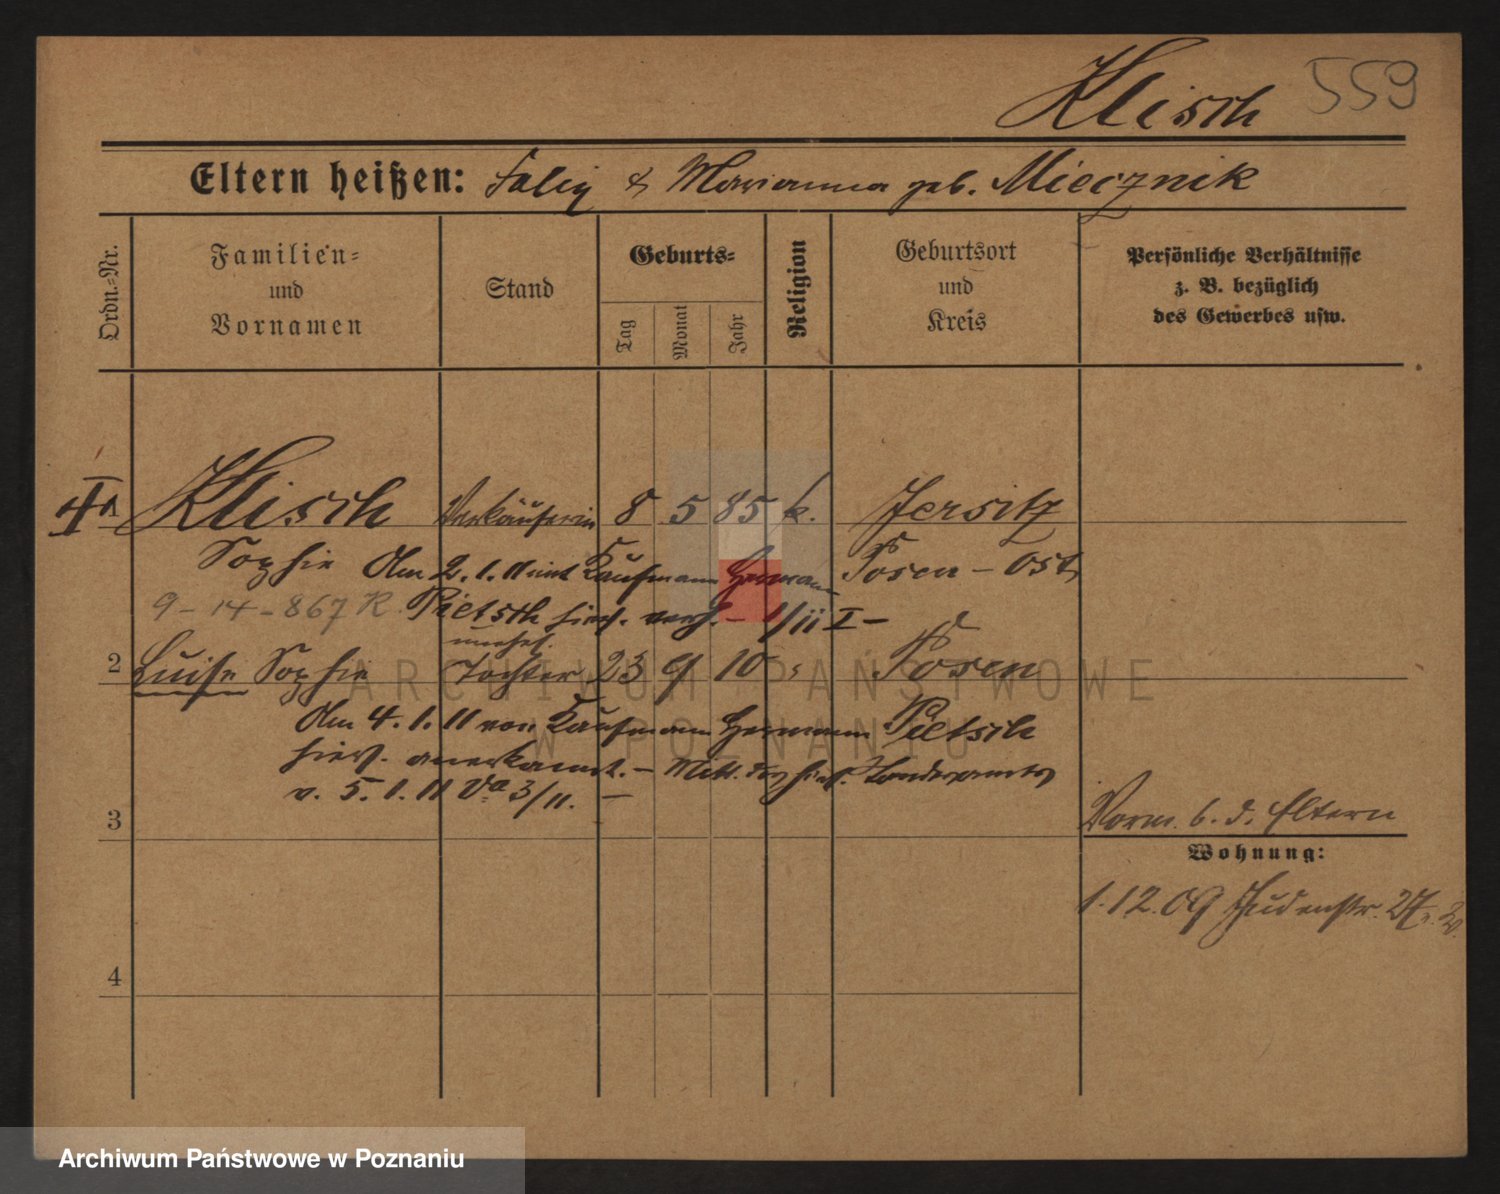 Klisch 559
Eltern heißen: Felix & Marianna geb. Miecznik
Ordn.-Nr.
Familien-
und
Vornamen
Stand
Geburts-
Tag
Monat
Jahr
Religion
Geburtsort
und
Kreis
Persönliche Verhältnisse
z. B. bezüglich
des Gewerbes usw.
Klisch Verkäuferin 8 5 85 k. Jersitz
Sophie Am 2.1.11 mit Kaufmann Hermann Posen-Ost
9-14-867 R. Pietsch hies. verh. – 1/11 I –
unehel.
2 Luise Sophie Tochter 23 9 10 Posen
Am 4.1.11 von Kaufmann Hermann Pietsch
hies. anerkannt. – Mitt. des hies. Standesamtes
v. 5.1.11 Va 3/11. –
3
Vorm. b. d. Eltern
Wohnung:
1.12.09 Judenstr. 27
4
ARCHIWUM PAŃSTWOWE
W POZNANIU
Archiwum Państwowe w Poznaniu